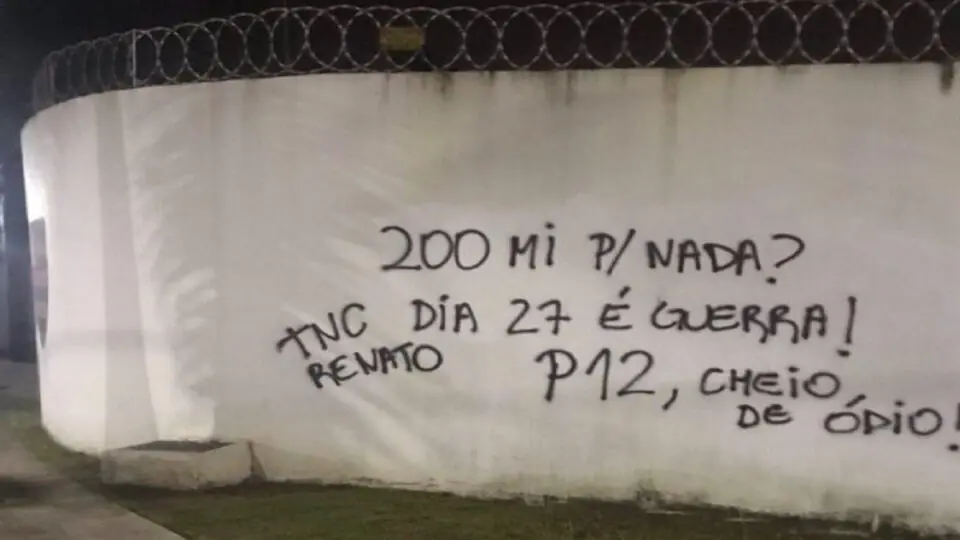 200 Mi P/ NADA?
DiA 27 É GUERRA!
TNC
RENATO
P12, CHEiO
DE ÓDiO!